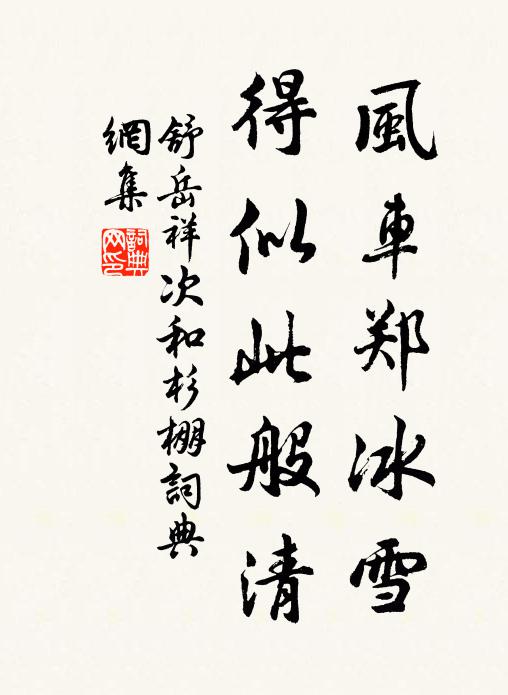 風車郑冰雪
得似此般清
舒岳祥次和杉棚詞典
網集
詞典
网印